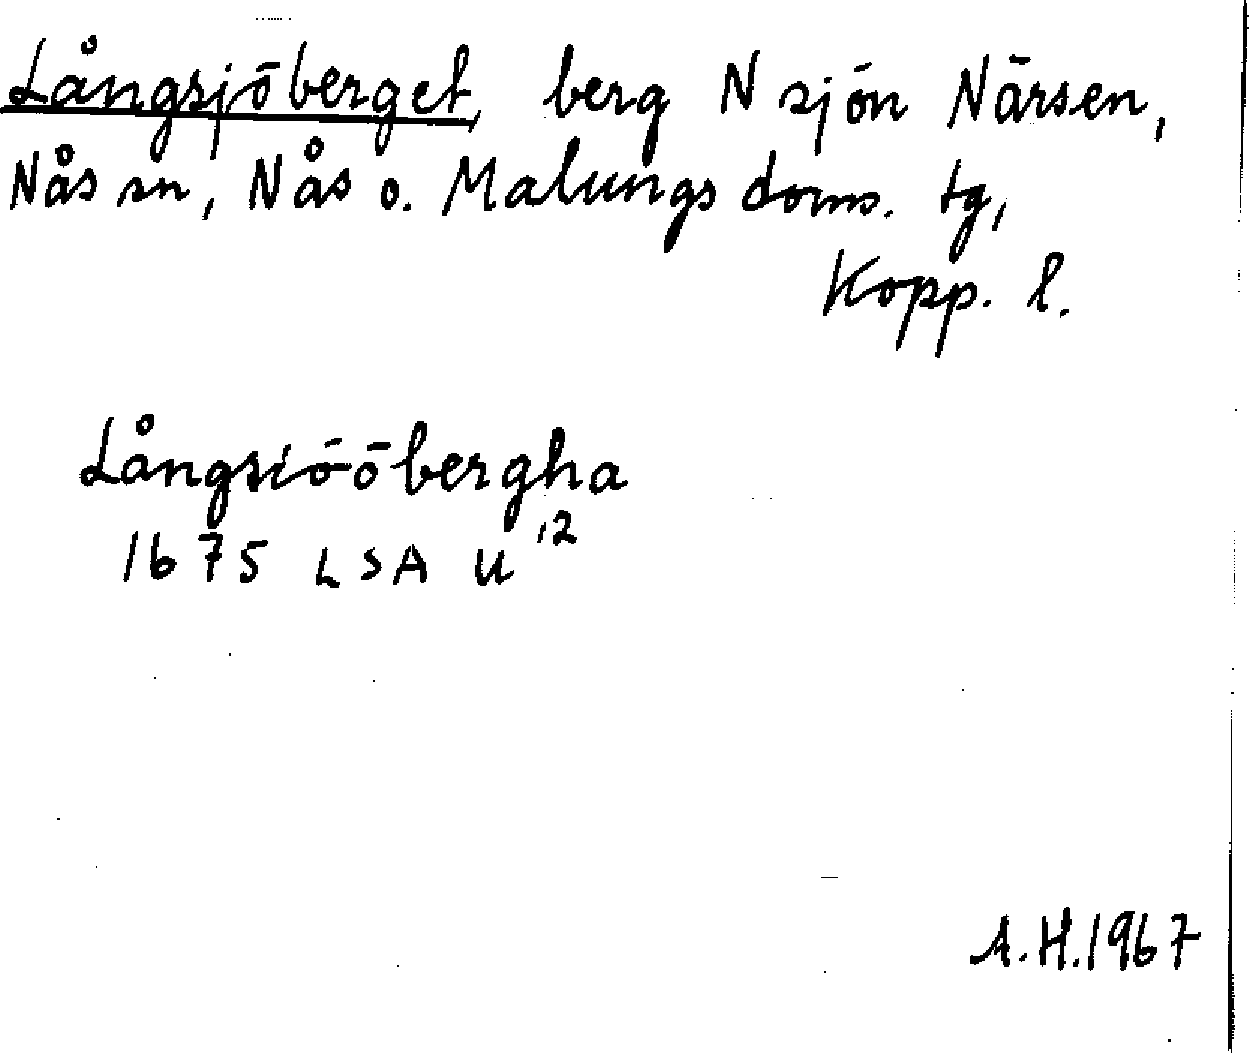 Långsjöberget, berg N sjön Närsen,
Nås sn, Nås o. Malungs doms. tg,
Kopp. l.
Långsiööbergha
1675 LSA U 12
A.H.1967